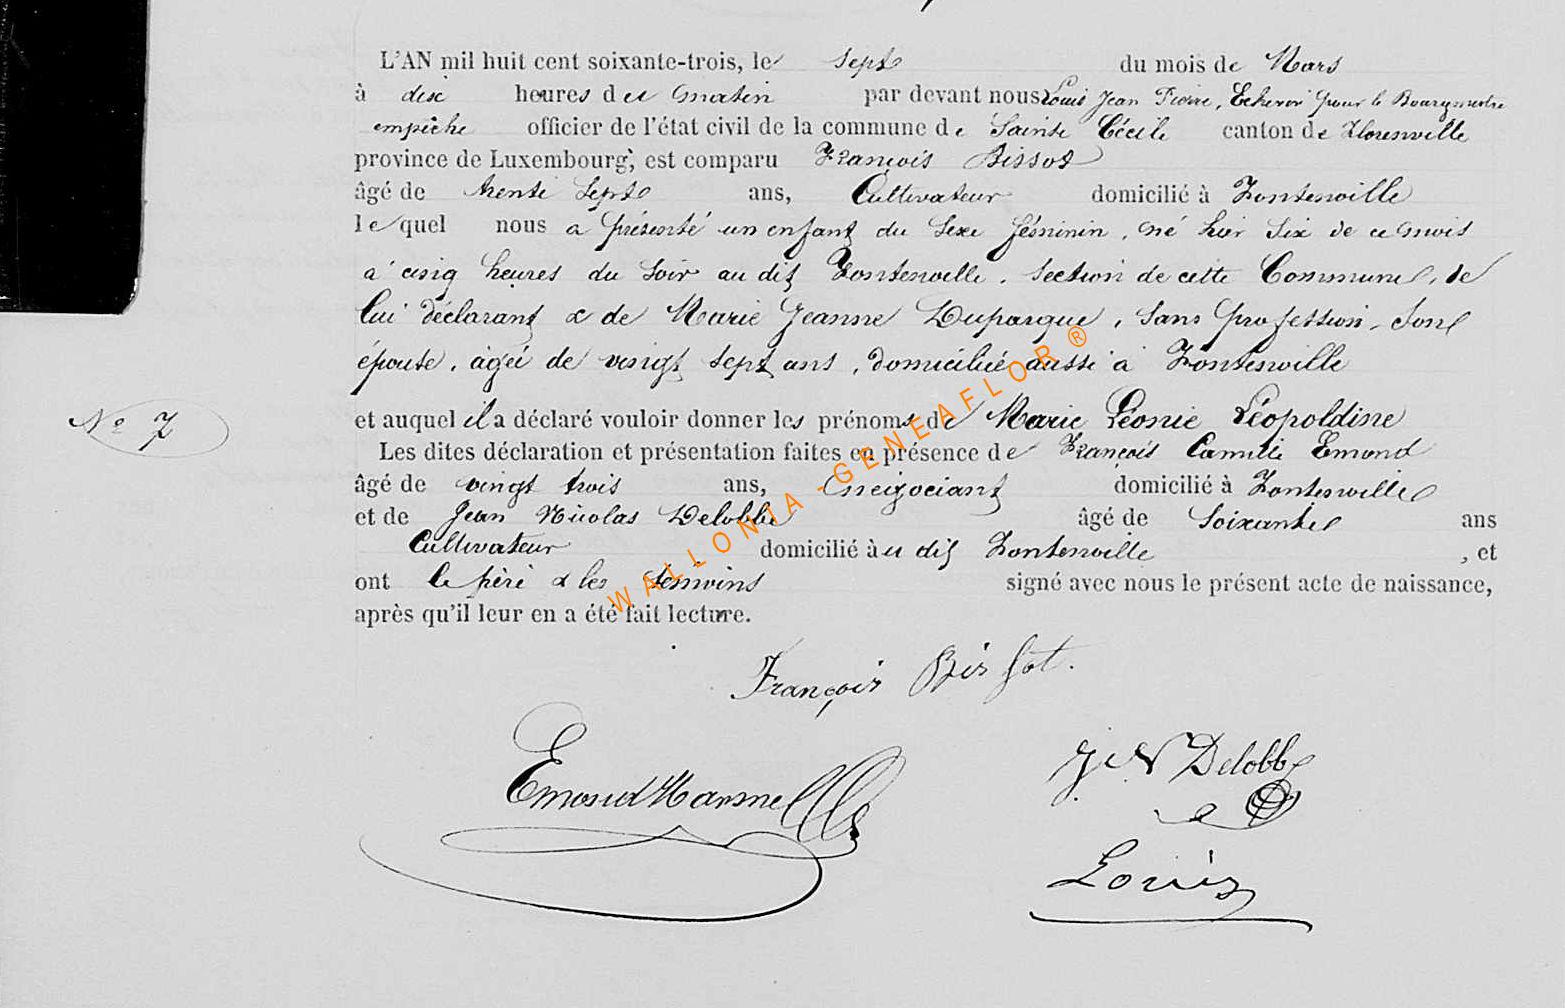 L'AN mil huit cent soixante-trois, le sept du mois de Mars
à dix heures du matin par devant nous Louis Jean Pierre, Echevin pour le Bourgmestre
empêché officier de l'état civil de la commune de Sainte Cécile canton de Florenville
province de Luxembourg, est comparu François Bissot
âgé de trente Sept ans, Cultivateur domicilié à Fontenoille
lequel nous a présenté un enfant du Sexe féminin, né hier Six de ce mois
à cinq heures du Soir au dit Fontenoille, Section de cette Commune, de
lui déclarant & de Marie Jeanne Duparque, Sans profession, Son
épouse, agée de vingt Sept ans, domiciliée aussi à Fontenoille
et auquel il a déclaré vouloir donner les prénoms de Marie Léonie Léopoldine
Nº 7
Les dites déclaration et présentation faites en présence de François Camille Emond
âgé de vingt trois ans, négociant domicilié à Fontenoille
et de Jean Nicolas Delobbe âgé de Soixante ans
Cultivateur domicilié au dit Fontenoille, et
ont le père & les temoins signé avec nous le présent acte de naissance,
après qu'il leur en a été fait lecture.
WALLONIA-GENEAFLOR ®
François Bissot.
Emond
J N Delobbe
Louis